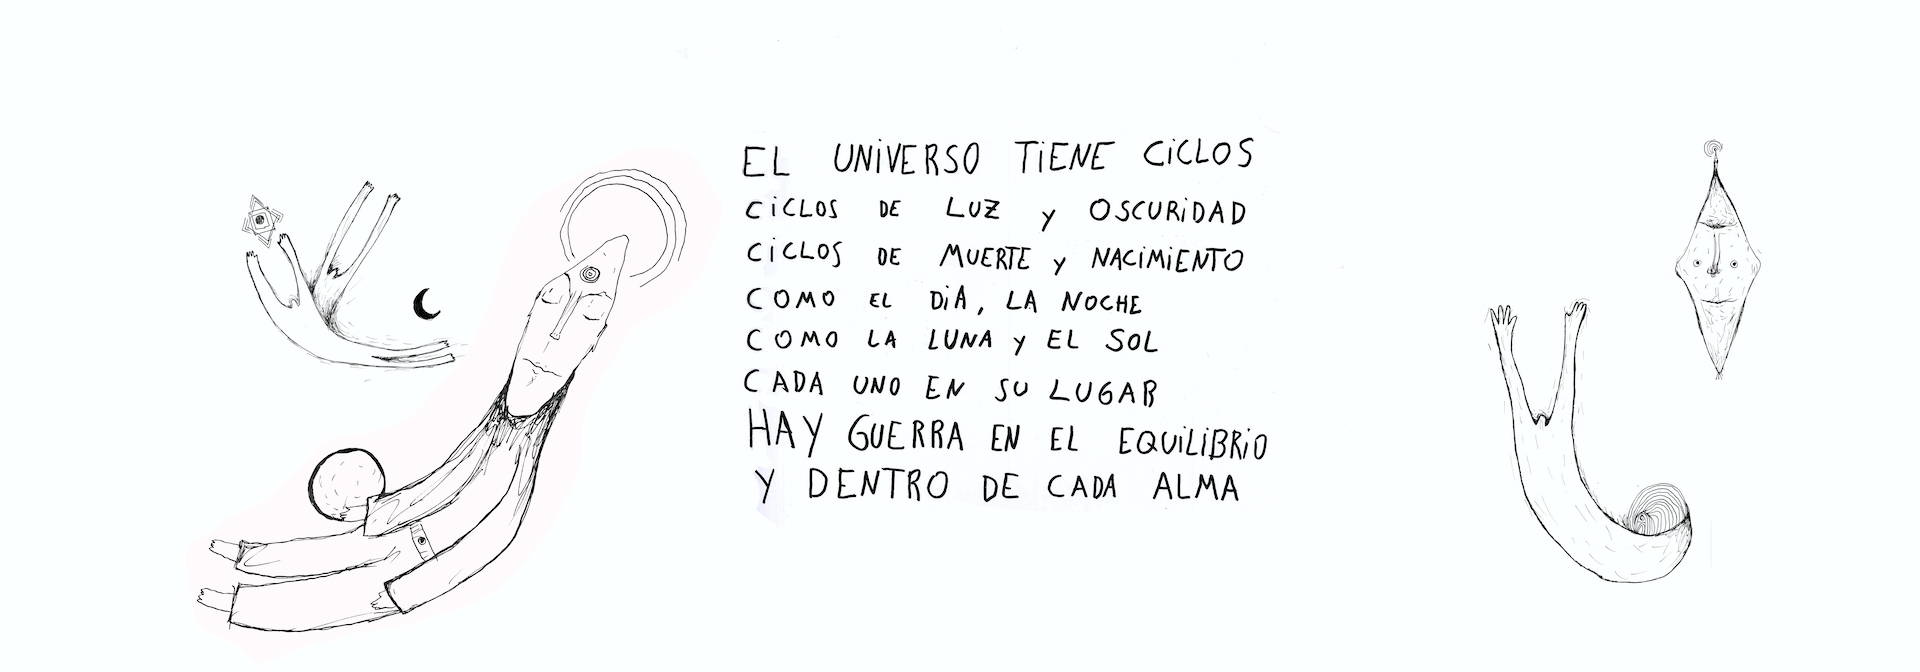 EL UNiVERSO TiENE CiCLOS
CiCLOS DE LUZ y OSCURiDAD
CiCLOS DE MUERTE y NACiMiENTO
COMO EL DiA, LA NOCHE
COMO LA LUNA y EL SOL
CADA UNO EN SU LUGAR
HAY GUERRA EN EL EQUiLIBRiO
Y DENTRO DE CADA ALMA